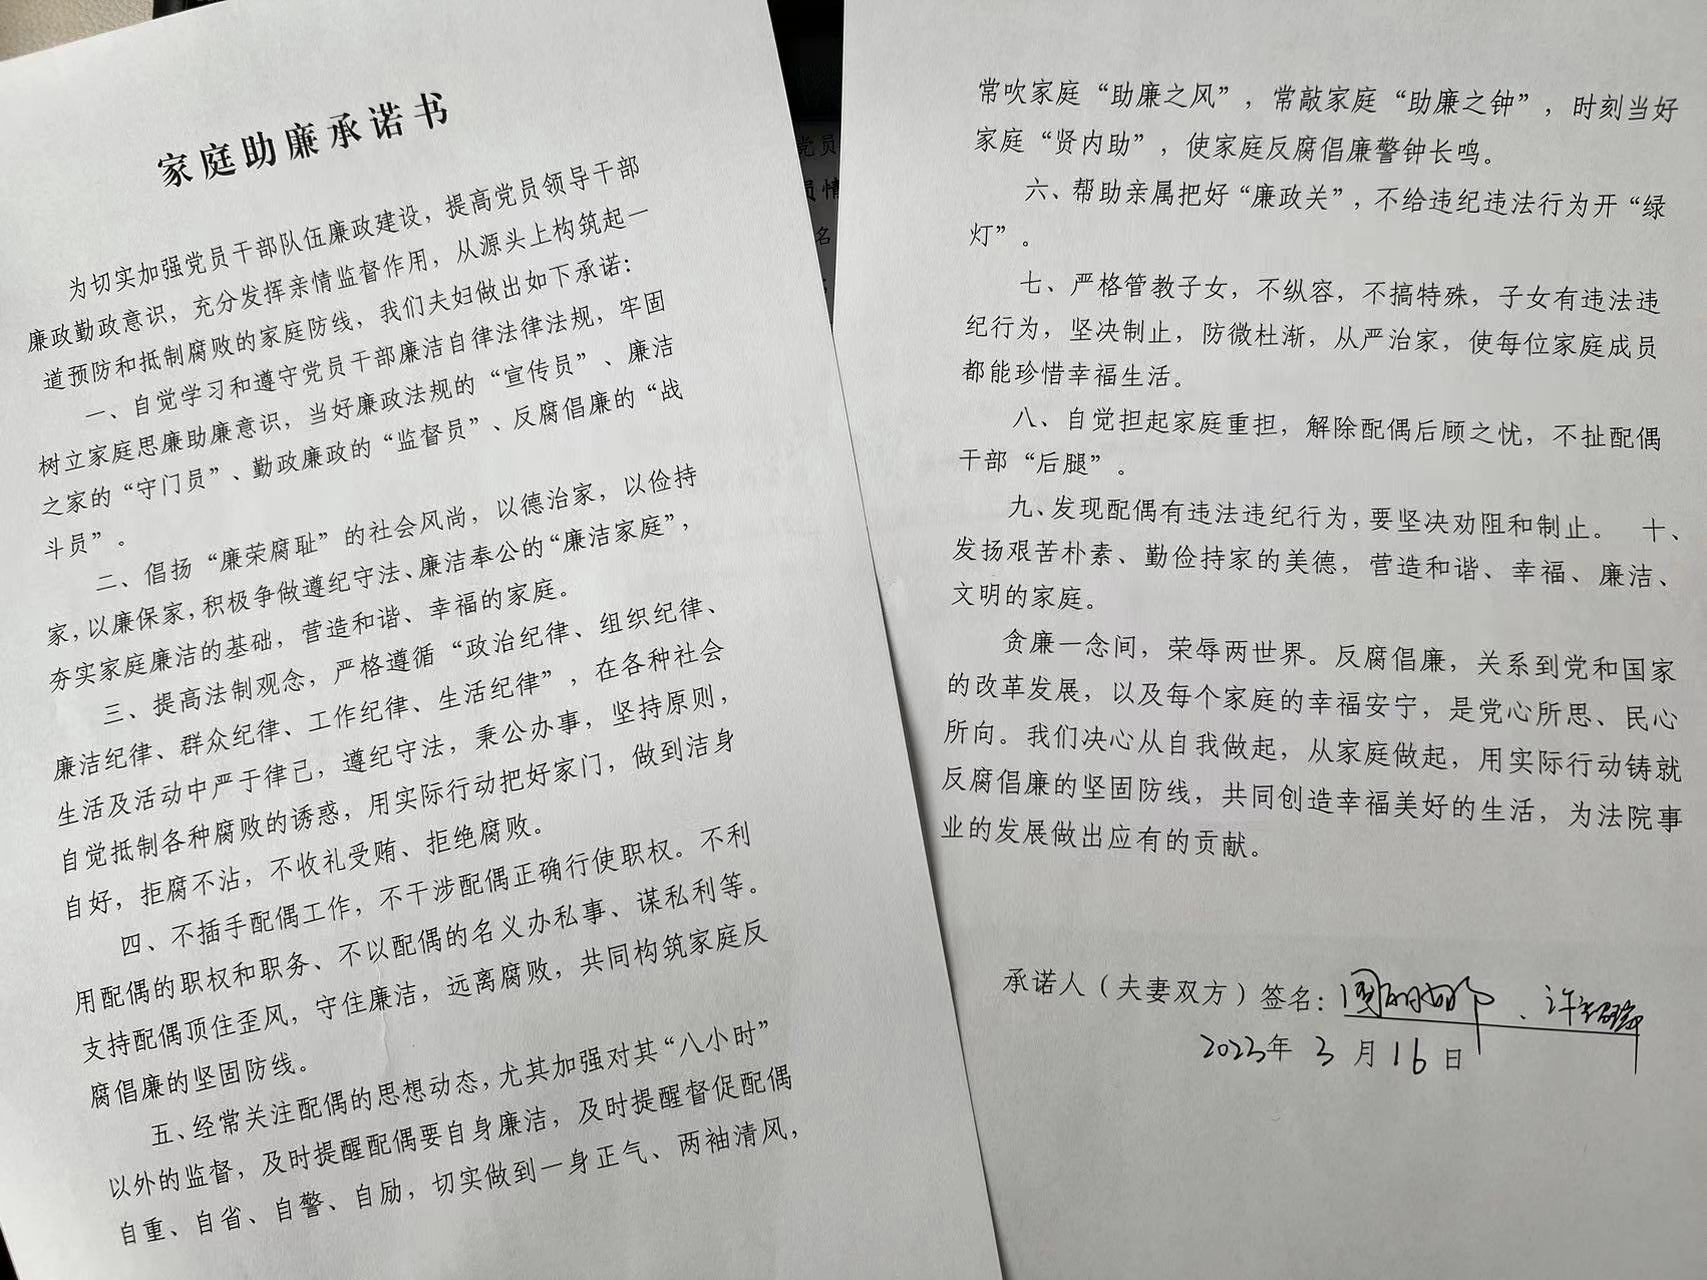 家庭助廉承诺书
为切实加强党员干部队伍廉政建设，提高党员领导干部
廉政勤政意识，充分发挥亲情监督作用，从源头上构筑起一
道预防和抵制腐败的家庭防线，我们夫妇做出如下承诺：
一、自觉学习和遵守党员干部廉洁自律法律法规，牢固
树立家庭思廉助廉意识，当好廉政法规的“宣传员”、廉洁
之家的“守门员”、勤政廉政的“监督员”、反腐倡廉的“战
斗员”。
二、倡扬“廉荣腐耻”的社会风尚，以德治家，以俭持
家，以廉保家，积极争做遵纪守法、廉洁奉公的“廉洁家庭”，
夯实家庭廉洁的基础，营造和谐、幸福的家庭。
三、提高法制观念，严格遵循“政治纪律、组织纪律、
廉洁纪律、群众纪律、工作纪律、生活纪律”，在各种社会
生活及活动中严于律己，遵纪守法，秉公办事，坚持原则，
自觉抵制各种腐败的诱惑，用实际行动把好家门，做到洁身
自好，拒腐不沾，不收礼受贿、拒绝腐败。
四、不插手配偶工作，不干涉配偶正确行使职权。不利
用配偶的职权和职务、不以配偶的名义办私事、谋私利等。
支持配偶顶住歪风，守住廉洁，远离腐败，共同构筑家庭反
腐倡廉的坚固防线。
五、经常关注配偶的思想动态，尤其加强对其“八小时”
以外的监督，及时提醒配偶要自身廉洁，及时提醒督促配偶
自重、自省、自警、自励，切实做到一身正气、两袖清风，
党员
员情
名
常吹家庭“助廉之风”，常敲家庭“助廉之钟”，时刻当好
家庭“贤内助”，使家庭反腐倡廉警钟长鸣。
六、帮助亲属把好“廉政关”，不给违纪违法行为开“绿
灯”。
七、严格管教子女，不纵容，不搞特殊，子女有违法违
纪行为，坚决制止，防微杜渐，从严治家，使每位家庭成员
都能珍惜幸福生活。
八、自觉担起家庭重担，解除配偶后顾之忧，不扯配偶
干部“后腿”。
九、发现配偶有违法违纪行为，要坚决劝阻和制止。 十、
发扬艰苦朴素、勤俭持家的美德，营造和谐、幸福、廉洁、
文明的家庭。
贪廉一念间，荣辱两世界。反腐倡廉，关系到党和国家
的改革发展，以及每个家庭的幸福安宁，是党心所思、民心
所向。我们决心从自我做起，从家庭做起，用实际行动铸就
反腐倡廉的坚固防线，共同创造幸福美好的生活，为法院事
业的发展做出应有的贡献。
承诺人（夫妻双方）签名：
2023年 3 月 16 日